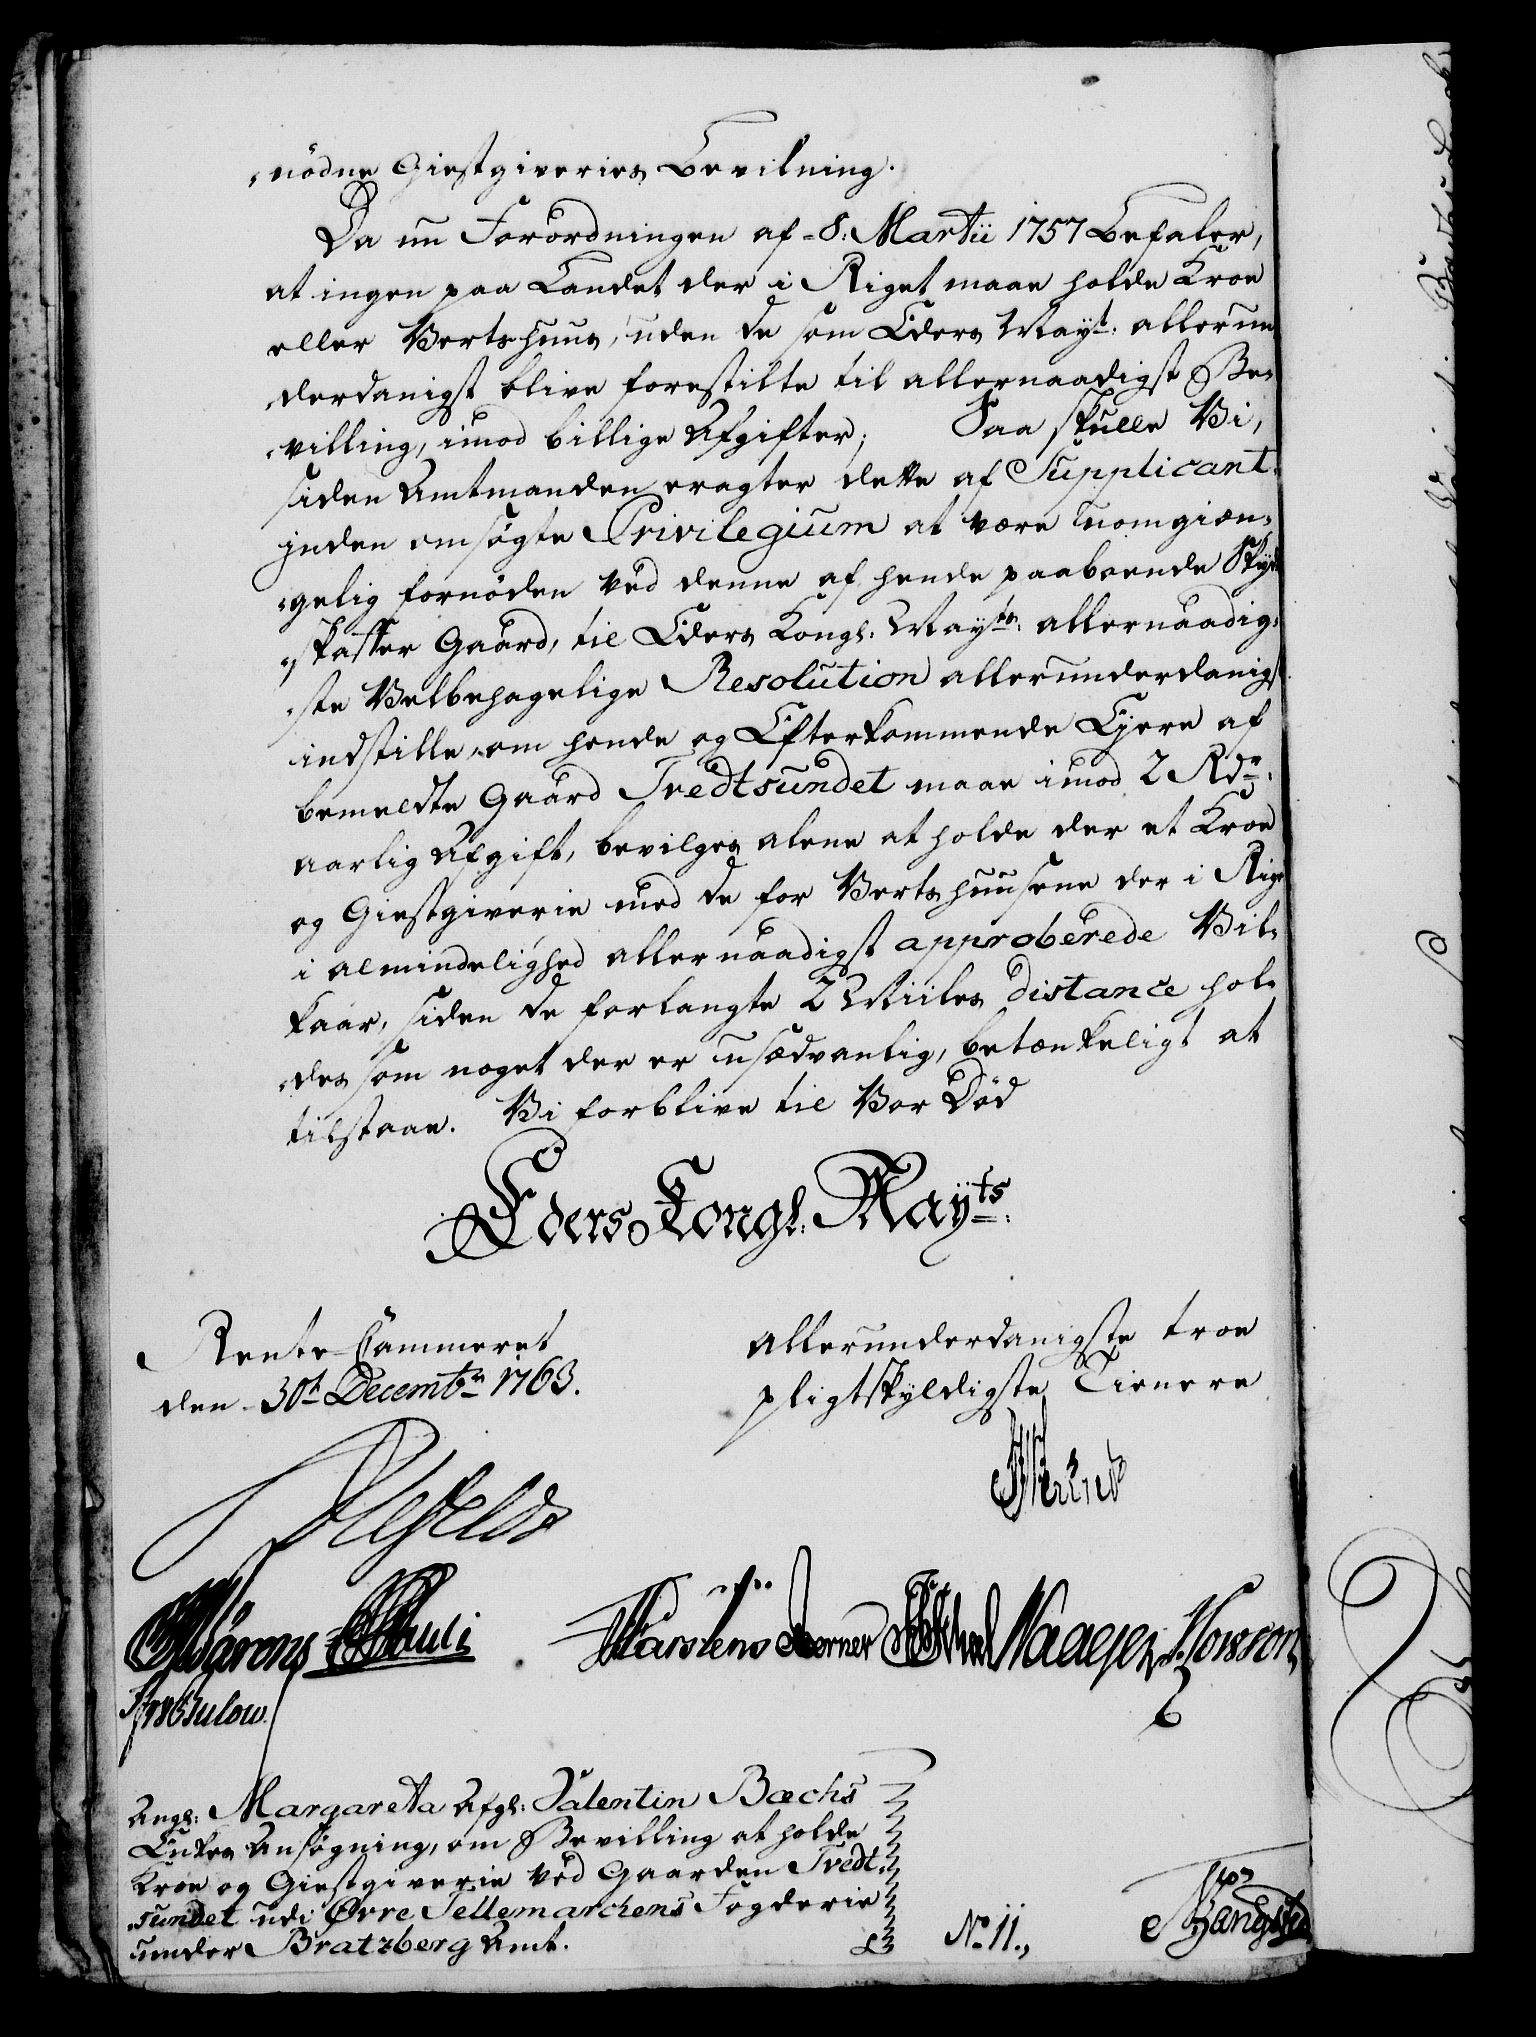 „nödne Giestgiveries Bevilning.
Da nu Forordningen af 8: Martii 1757 Befaler,
at ingen paa Landet der i Riget maae holde Kroe
eller Vertshuus, uden de som Eders Mayt: allerun
„derdanigst blive forestilte til allernaadigst Be„
„villing, imod billige Afgifter; Saa skulle Vi,
siden Amtmanden eragter dette af Supplicant„
inden omsøgte Privilegium at være uomgiæn„
„gelig fornöden ved denne af hende paaboende Skyds
„skaffer Gaard, til Eders Kongl: Mayts: allernaadig„
„ste Velbehagelige Resolution allerunderdanigst
indstille, om hende og Efterkommende Ejere af
bemeldte Gaard Tvedtsundet maae imod 2 Rdr:
aarlig Afgift, bevilges alene at holde der et Kroe
og Giestgiverie med de for Vertshuusene der i Rige
i almindelighed allernaadigst approberede Vil„
kaar, siden de forlangte 2 Miiles distance hol„
„des som noget der er usædvanlig, betænkeligt at
tilstaae. Vi forblive til Vor Död
Eders Kongl: Mayts:
Rente-Cammeret
den 30t Decembr 1763.
allerunderdanigste troe
pligtskyldigste Tienere
Pauli
Karstens Berner
Bulow.
Angl: Margareta Afgl: Valentin Bæchs
Enkes Ansøgning, om Bevilling at holde
Kroe og Giestgiverie ved Gaarden Tvedt„
„sundet udi Øvre Tellemarchens Fogderie
under Bratzberg Amt.
No 11.,